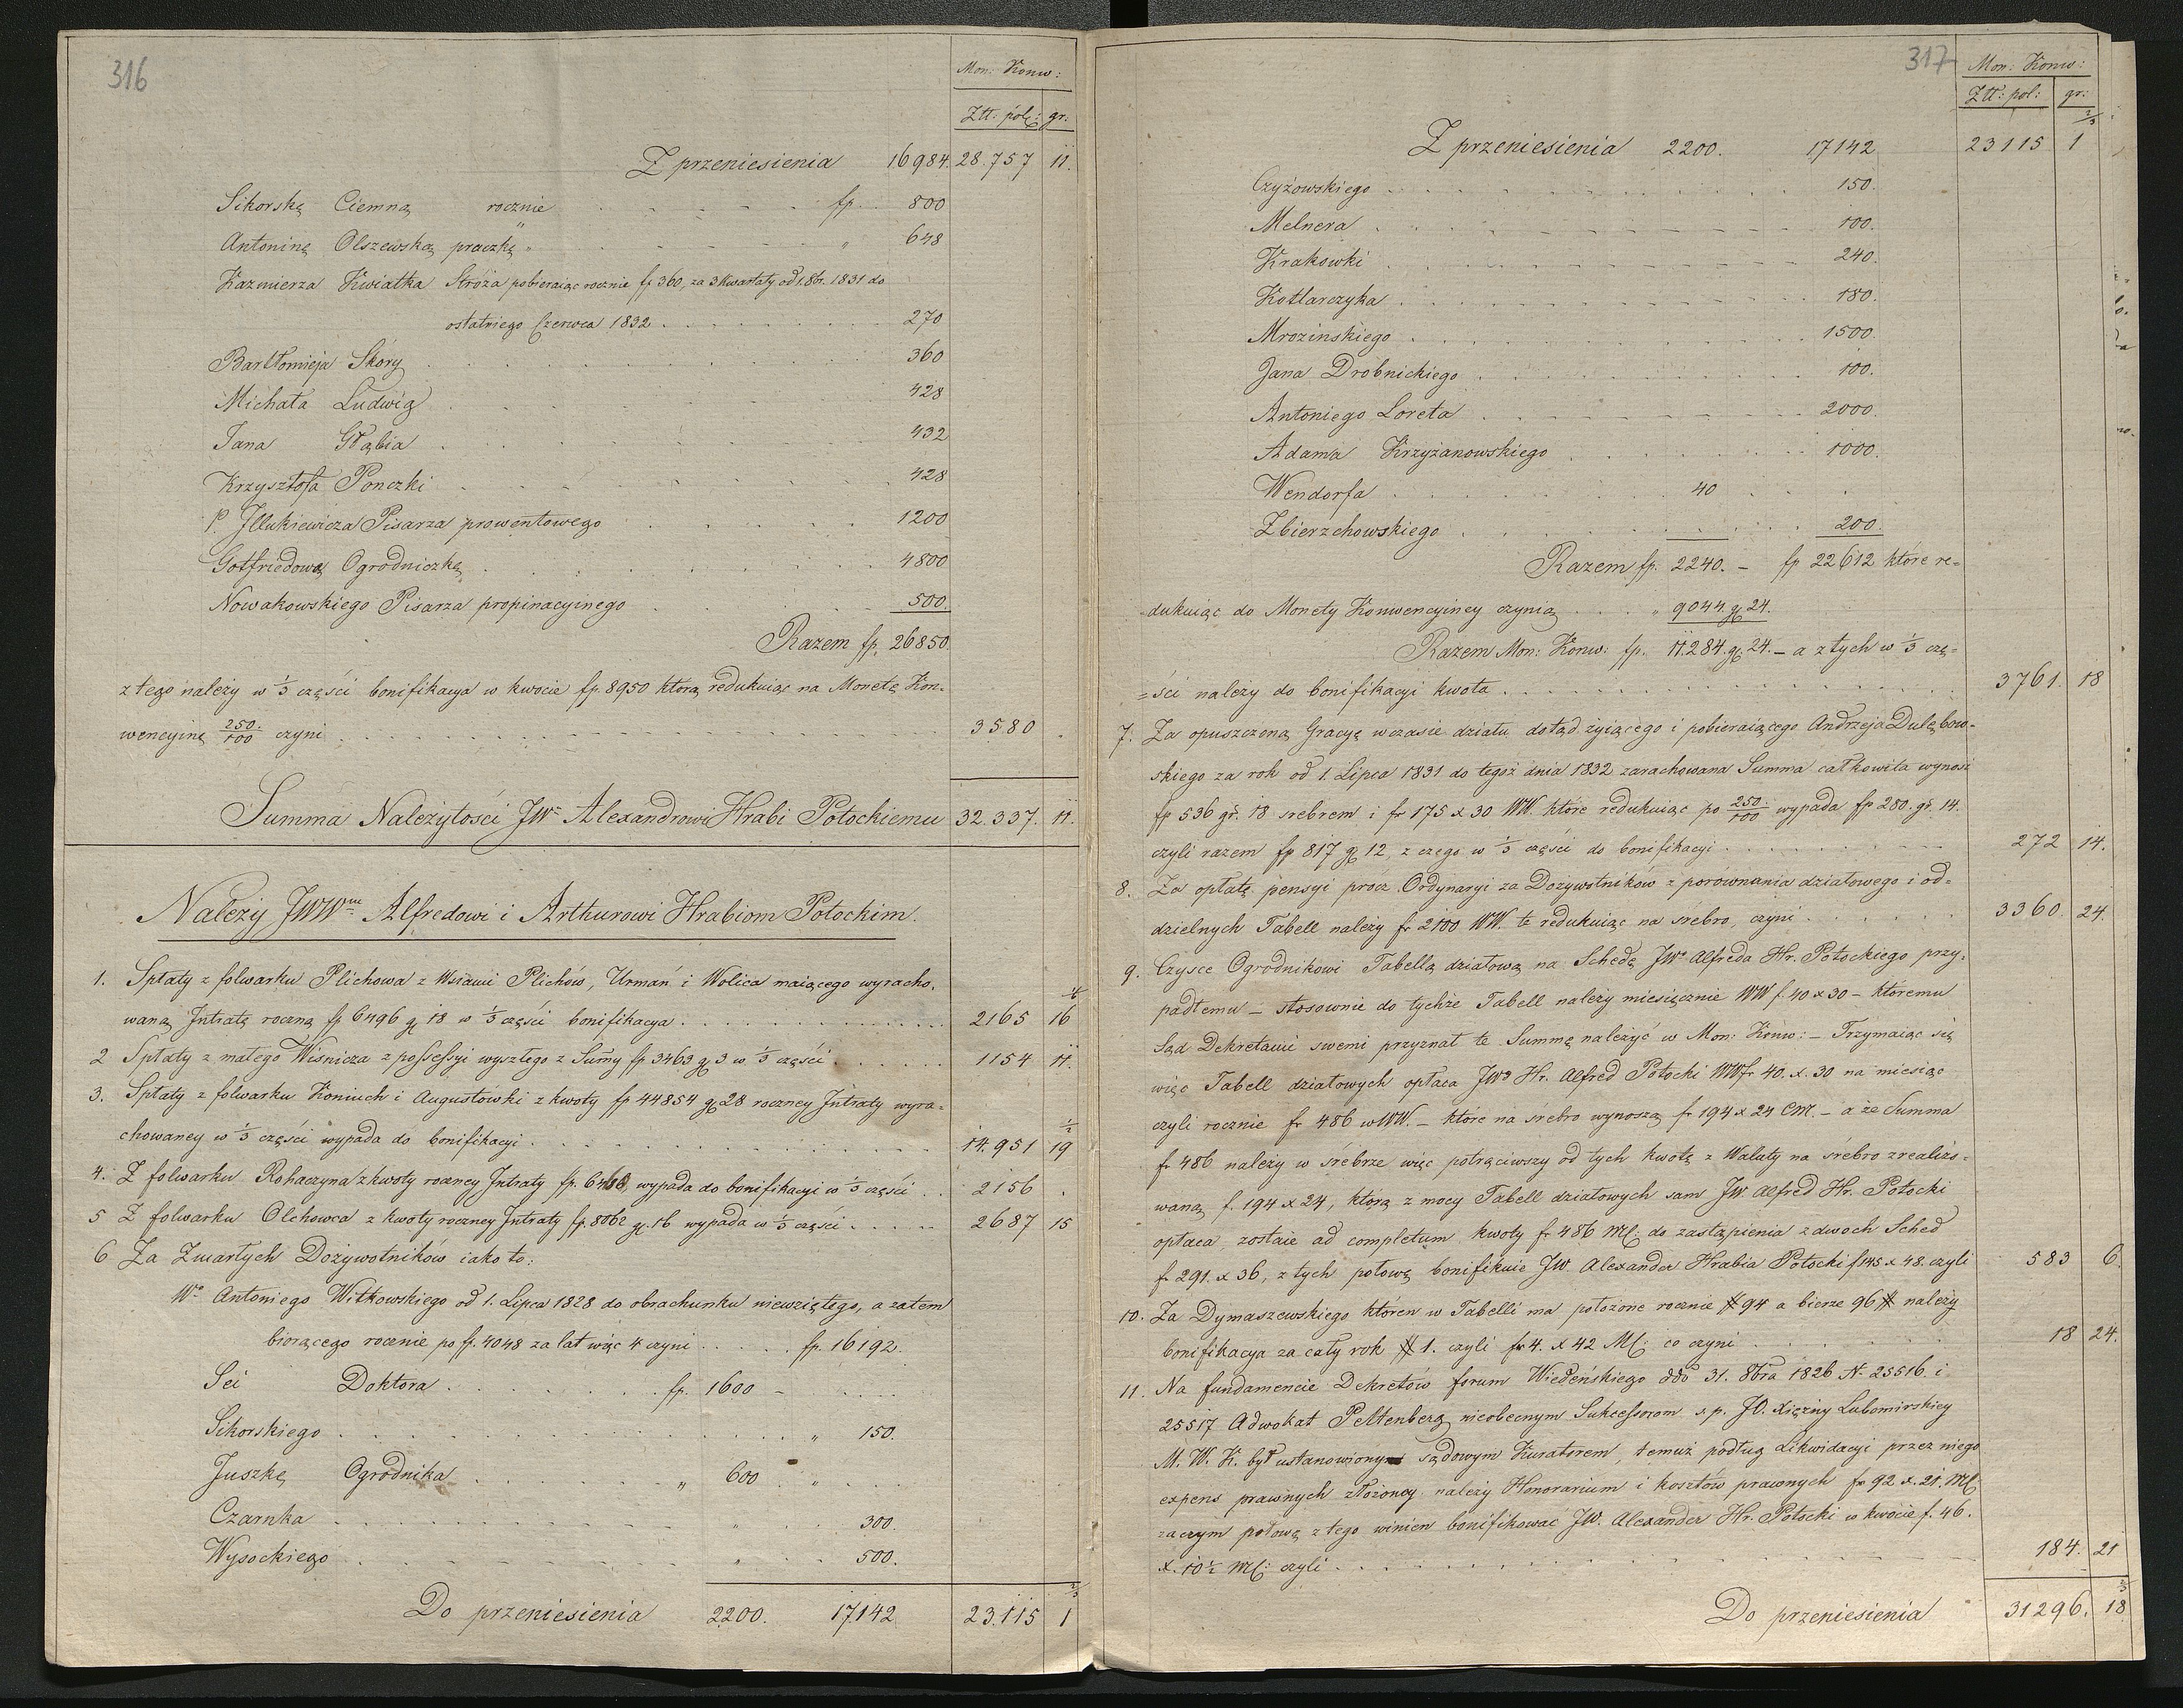 316
Mon: Konw:
Ztt: pol: gr:
Z przeniesienia 16984. 28.757 11.
Sikorską Ciemną rocznie . . . . . fp. 800
Antoninę Olszewską praczkę " . . . . . " 648
Kazmierza Kwiatka Stróża pobieraiąc rocznie fp 360, za 3 Kwartały od 1. 8br. 1831 do
ostatniego Czerwca 1832 . . . . . 270
Bartłomieja Skóry . . . . . 360
Michała Ludwig . . . . . 428
Jana Głąbia . . . . . 432
Krzysztofa Ponczki . . . . . 428
P. Jllukiewicza Pisarza prowentowego . . . . . 1200
Gotfriedową Ogrodniczkę . . . . . 4800
Nowakowskiego Pisarza propinacyinego . . . . . 500.
Razem fp. 26850.
z tego należy w ⅓ części bonifikacya w kwocie fp. 8950 którą redukuiąc na Monetę Kon-
wencyinę 250/100 czyni . . . . . 3580 .
Summa Należytości JWu Alexandrowi Hrabi Potockiemu 32.337. 11.
Należy JWWm Alfredowi i Arthurowi Hrabiom Potockim.
1. Spłaty z folwarku Plichowa z Wsiami Plichów, Urmań i Wolica maiącego wyracho-
waną Jntratę roczną fp 6496 gr 18 w ⅓ części bonifikacya . . . . . 2165 16
2 Spłaty z małego Wisnicza z possessyi wyszłego z Summy fp 3463 gr 3 w ⅓ części . . . . . 1154 11.
3. Spłaty z folwarku Koniuch i Augustówki z kwoty fp 44854 gr 28 roczney Jntraty wyra-
chowaney w ⅓ części wypada do bonifikacyi . . . . . 14.951 19 ½
4. Z folwarku Rohaczyna z kwoty roczney Jntraty fp. 6468, wypada do bonifikacyi w ⅓ części . . 2156 .
5 Z folwarku Olchowca z kwoty roczney Jntraty fp. 8062 gr. 16 wypada w ⅓ części . . . . . 2687 15
6 Za Zmarłych Dożywotników iako to:
Wo Antoniego Witkowskiego od 1. Lipca 1828 do obrachunku niewziętego, a zatem
biorącego rocznie po fp. 4048 za lat więc 4 czyni . . . . . fp. 16192.
Sei Doktora . . . . . fp. 1600 –
Sikorskiego . . . . . " 150.
Juszkę Ogrodnika . . . . . " 600 "
Czarnka . . . . . " 300.
Wysockiego . . . . . " 500.
Do przeniesienia 2200. 17142 23.115 1 ⅔
317
Mon: Konw:
Ztt: pol: gr:
Z przeniesienia 2200. 17142 23115 1 ⅔
Czyżowskiego . . . . . 150.
Melnera . . . . . 100.
Krakowki . . . . . 240.
Kotlarczyka . . . . . 180.
Mrozinskiego . . . . . 1500
Jana Drobnickiego . . . . . 100.
Antoniego Loreta . . . . . 2000.
Adama Krzyżanowskiego . . . . . 1000.
Wendorfa . . . . . 40 . . .
Zbierzchowskiego . . . . . 200.
Razem fp. 2240. – fp 22612 które re-
-dukuiąc do Monety Konwencyiney czynią . . . . " 9044 gr 24.
Razem Mon: Konw: fp. 11.284. gr. 24. – a z tych w ⅓ czę-
=ści należy do bonifikacyi kwota . . . . . 3761. 18
7. Za opuszczoną Gracyę w czasie działu dotąd żyiącego i pobieraiącego Andrzeja Dulębow-
skiego za rok od 1. Lipca 1831 do tegoż dnia 1832 zarachowana Summa całkowita wynosi
fp 536 gr. 18 srebrem i fr 175 x 30 WW. które redukuiąc po 250/100 wypada fp 280. gr. 14.
czyli razem fp 817 gr 12, z czego w ⅓ części do bonifikacyi . . . . . 272 14.
8. Za opłatę pensyi prócz Ordynaryi za Dożywotników z porównania działowego i od-
dzielnych Tabell należy fr 2100 WW. te redukuiąc na srebro, czyni . . . . . 3360. 24.
9. Czysce Ogrodnikowi Tabellą działową na Schedę JWo Alfreda Hr. Potockiego przy-
padłemu – stosownie do tychże Tabell należy miesięcznie WW f. 40 x 30 – któremu
Sąd Dekretami swemi przyznał te Summę należyć w Mon: Konw: – Trzymaiąc się
więc Tabell działowych opłaca JWo Hr. Alfred Potocki WW fr 40. x. 30 na miesiąc
czyli rocznie fr 486 w WW. – które na srebro wynoszą fr 194 x 24 CM. – a że Summa
fr 486 należy w śrebrze więc potrąciwszy od tych kwotę z Walaty na śrebro zrealizo-
waną f. 194 x 24, którą z mocy Tabell działowych sam JW. Alfred Hr. Potocki
opłaca zostaie ad completum kwoty fr 486 MC: do zastąpienia z dwoch Sched
fr 291. x 36, z tych połowę bonifikuie JW. Alexander Hrabia Potocki f 145 x 48. czyli 583 6.
10. Za Dymaszewskiego któren w Tabelli ma położone rocznie # 94 a bierze 96 # należy
bonifikacya za cały rok # 1. czyli fr 4. x 42 MC: co czyni . . . . . 18 24.
11. Na fundamencie Dekretów forum Wiedeńskiego ddo 31. 8bra 1826 N. 25516. i
25517 Adwokat Peltenberg nieobecnym Sukcessorom ś. p. JO. Xiężny Lubomirskiey
M. W. K. był ustanowionym sądowym Kuratorem, temuż podług Likwidacyi przez niego
expens prawnych złożoney należy Honorarium i kosztów prawnych fr 92 x. 21. MC:
zaczym połowę z tego winien bonifikować JW. Alexander Hr. Potocki w kwocie f. 46.
x. 10½ MC: czyli . . . . . 184. 21
Do przeniesienia 31296. 18 ⅔